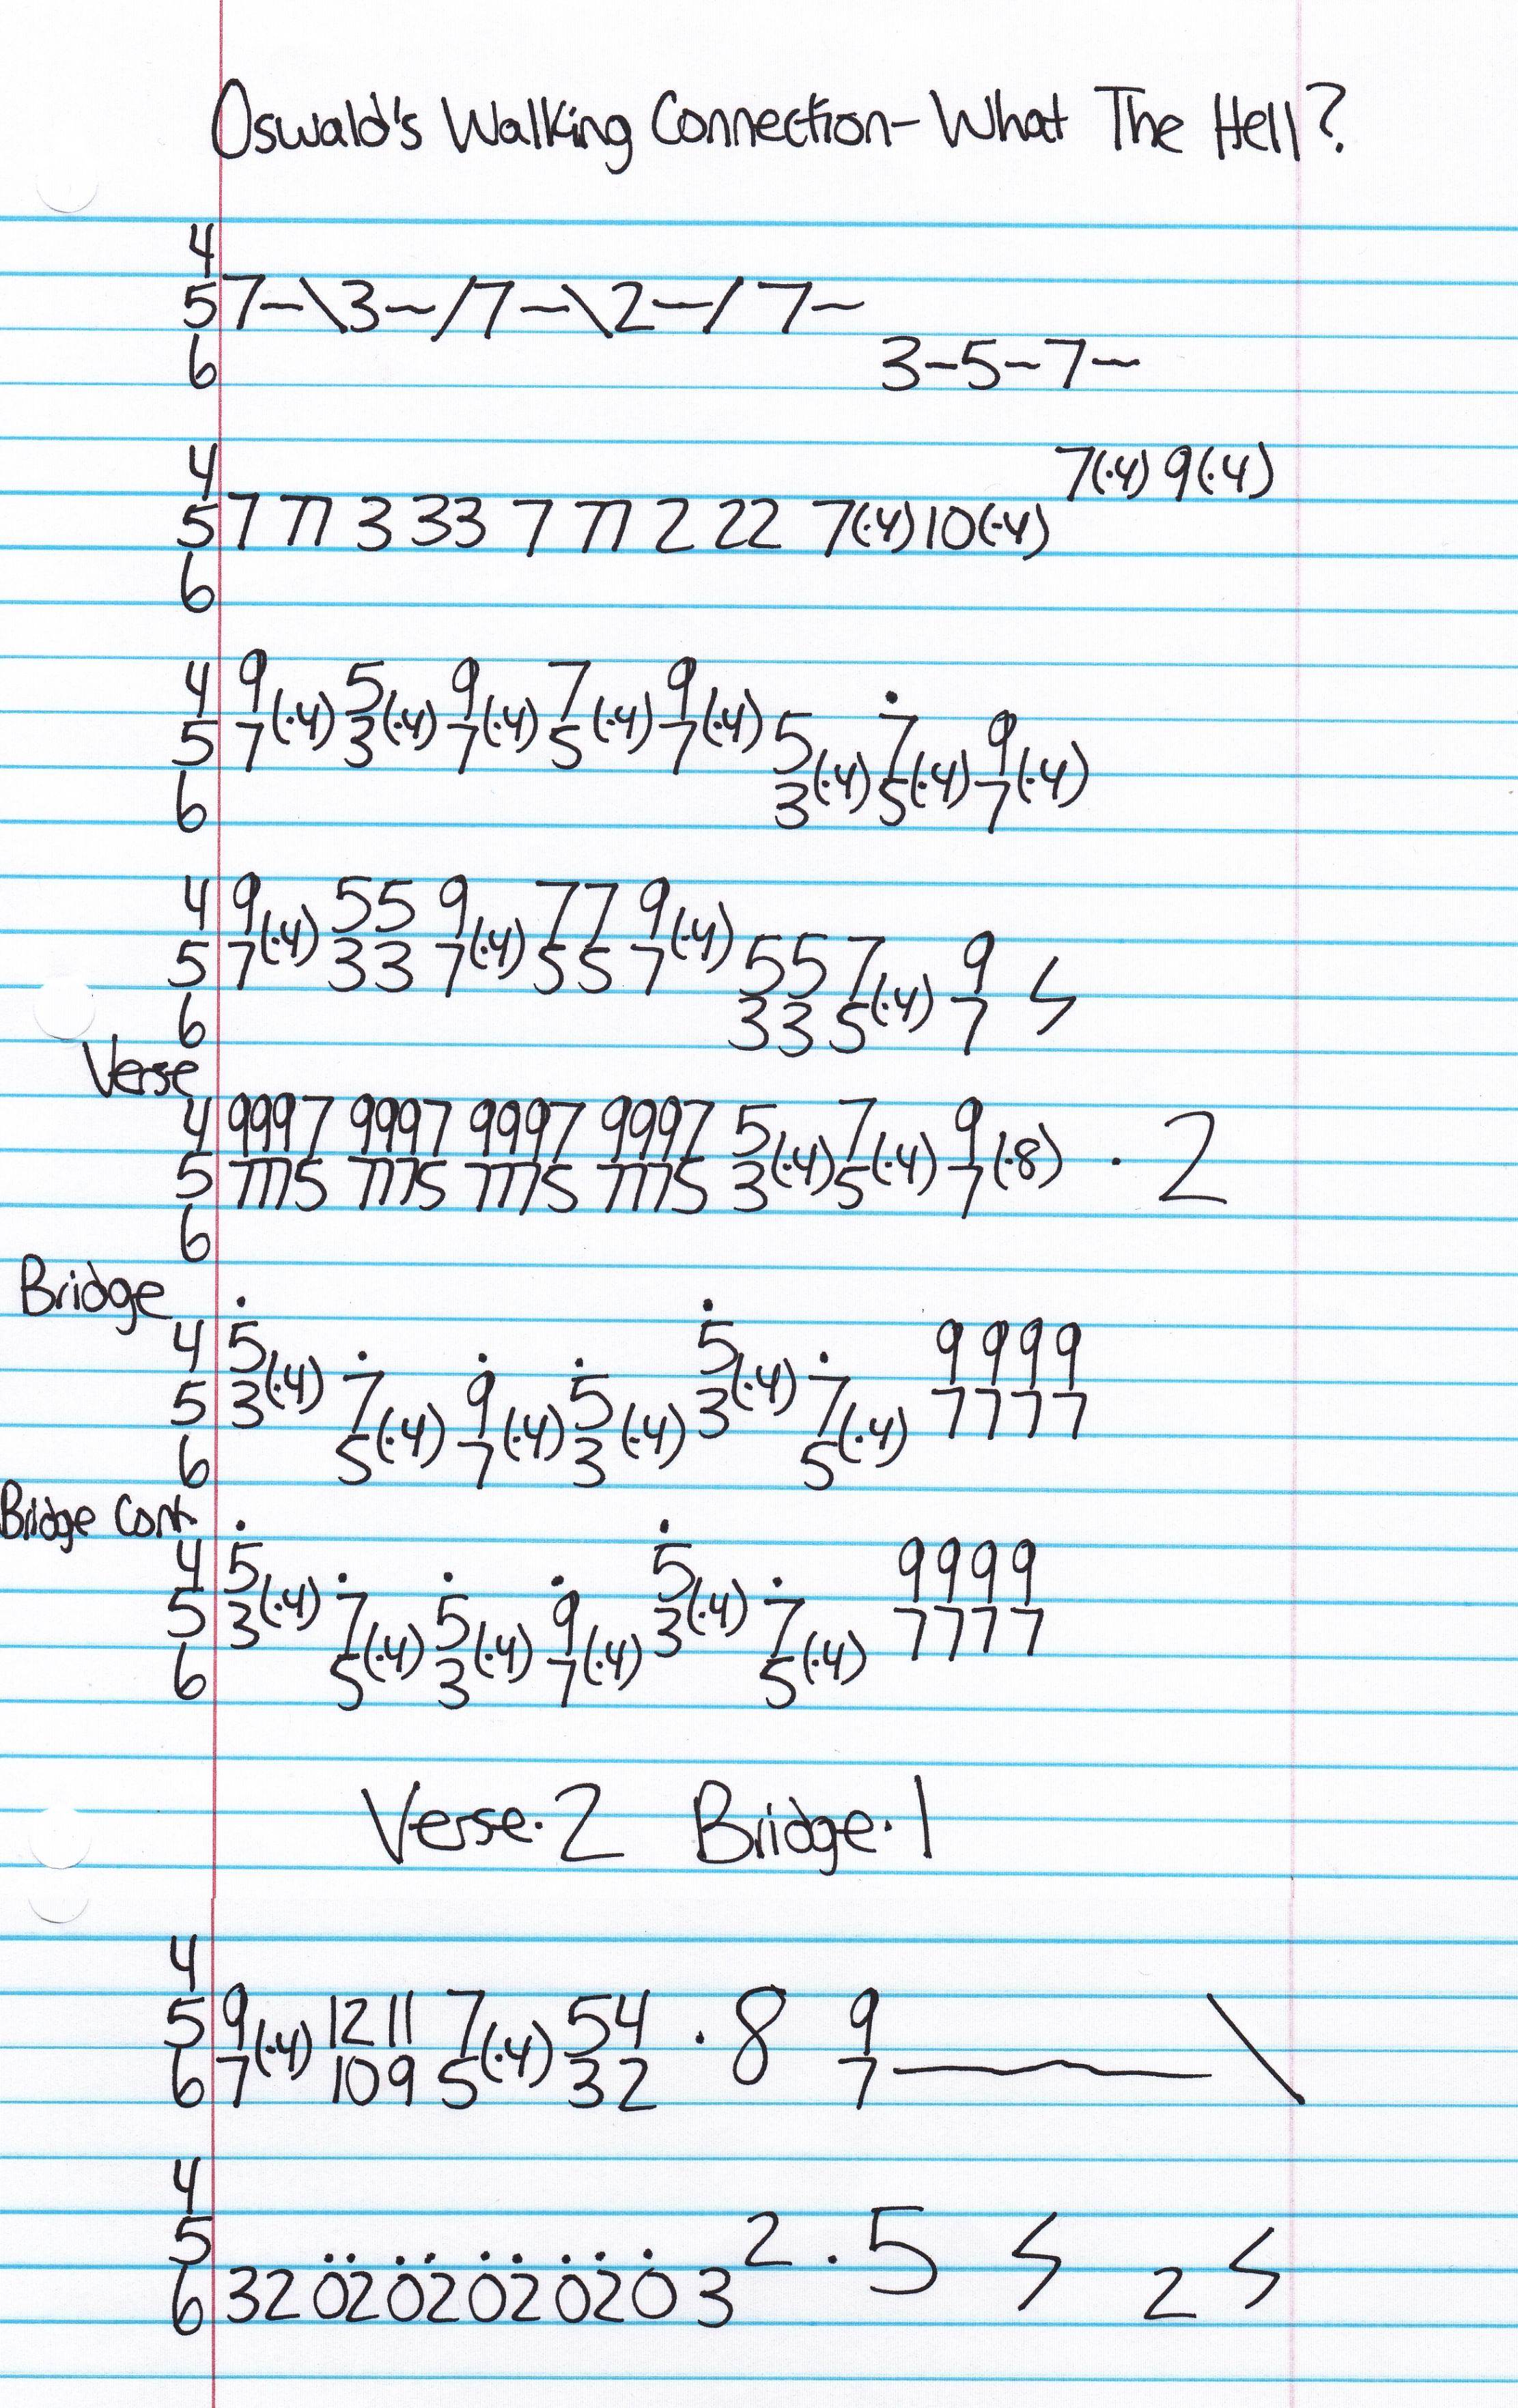 Oswald's Walking Connection - What The Hell?
4
5 7~\3~/7~\2~/7~
6 3-5-7~
4 7(·4) 9(·4)
5 7 77 3 33 7 77 2 22 7(·4) 10(·4)
6
4 9(·4) 5(·4) 9(·4) 7(·4) 9(·4)
5 7 3 7 5 7 5(·4) 7(·4) 9(·4)
6 3 5 7
4 9(·4) 55 9(·4) 77 9(·4)
5 7 33 7 55 7 55 7(·4) 9
6 33 5 7
Verse
4 9997 9997 9997 9997 5(·4) 7(·4) 9(·8) · 2
5 7775 7775 7775 7775 3 5 7
6
Bridge
4 5(·4) 5(·4) 9 9 9 9
5 3 7(·4) 9(·4) 5(·4) 3 7(·4) 7 7 7 7
6 5 7 3 5
Bridge Cont.
4 5(·4) 5(·4) 9 9 9 9
5 3 7(·4) 5(·4) 9(·4) 3 7(·4) 7 7 7 7
6 5 3 7 5
Verse·2 Bridge·1
4
5 9(·4) 12 11 7(·4) 5 4 · 8 9
6 7 10 9 5 3 2 7
4
5 2 · 5
6 3 2 0 2 0 2 0 2 0 2 0 3 2